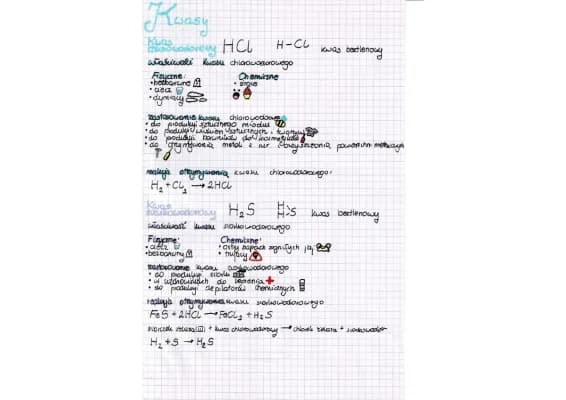 Kwasy
Kwas chlorowodorowy HCl H-Cl kwas beztlenowy
właściwości kwasu chlorowodorowego
Fizyczne: Chemiczne:
• bezbarwny • żrące
• ciecz
• dymiący
zastosowanie kwasu chlorowodorowego
• do produkcji sztucznego miodu
• do produkcji włókien sztucznych i
• do produkcji barwników do
• do otrzymywania metali z rud i oczyszczania powierzchni metalowych
reakcja otrzymywania kwasu chlorowodorowego:
H₂ + Cl₂ → 2HCl
Kwas siarkowodorowy H₂S H H >S kwas beztlenowy
właściwości kwasu siarkowodorowego
Fizyczne: Chemiczne:
• ciecz • ostry zapach zgniłych jaj
• bezbarwny • trujący
zastosowanie kwasu siarkowodorowego
• do produkcji siarki
• w uzdrowiskach do leczenia
• do produkcji depilatorów chemicznych
reakcja otrzymywania kwasu siarkowodorowego
FeS + 2HCl → FeCl₂ + H₂S
siarczek żelaza(II) + kwas chlorowodorowy → chlorek żelaza + siarkowodór
H₂ + S → H₂S